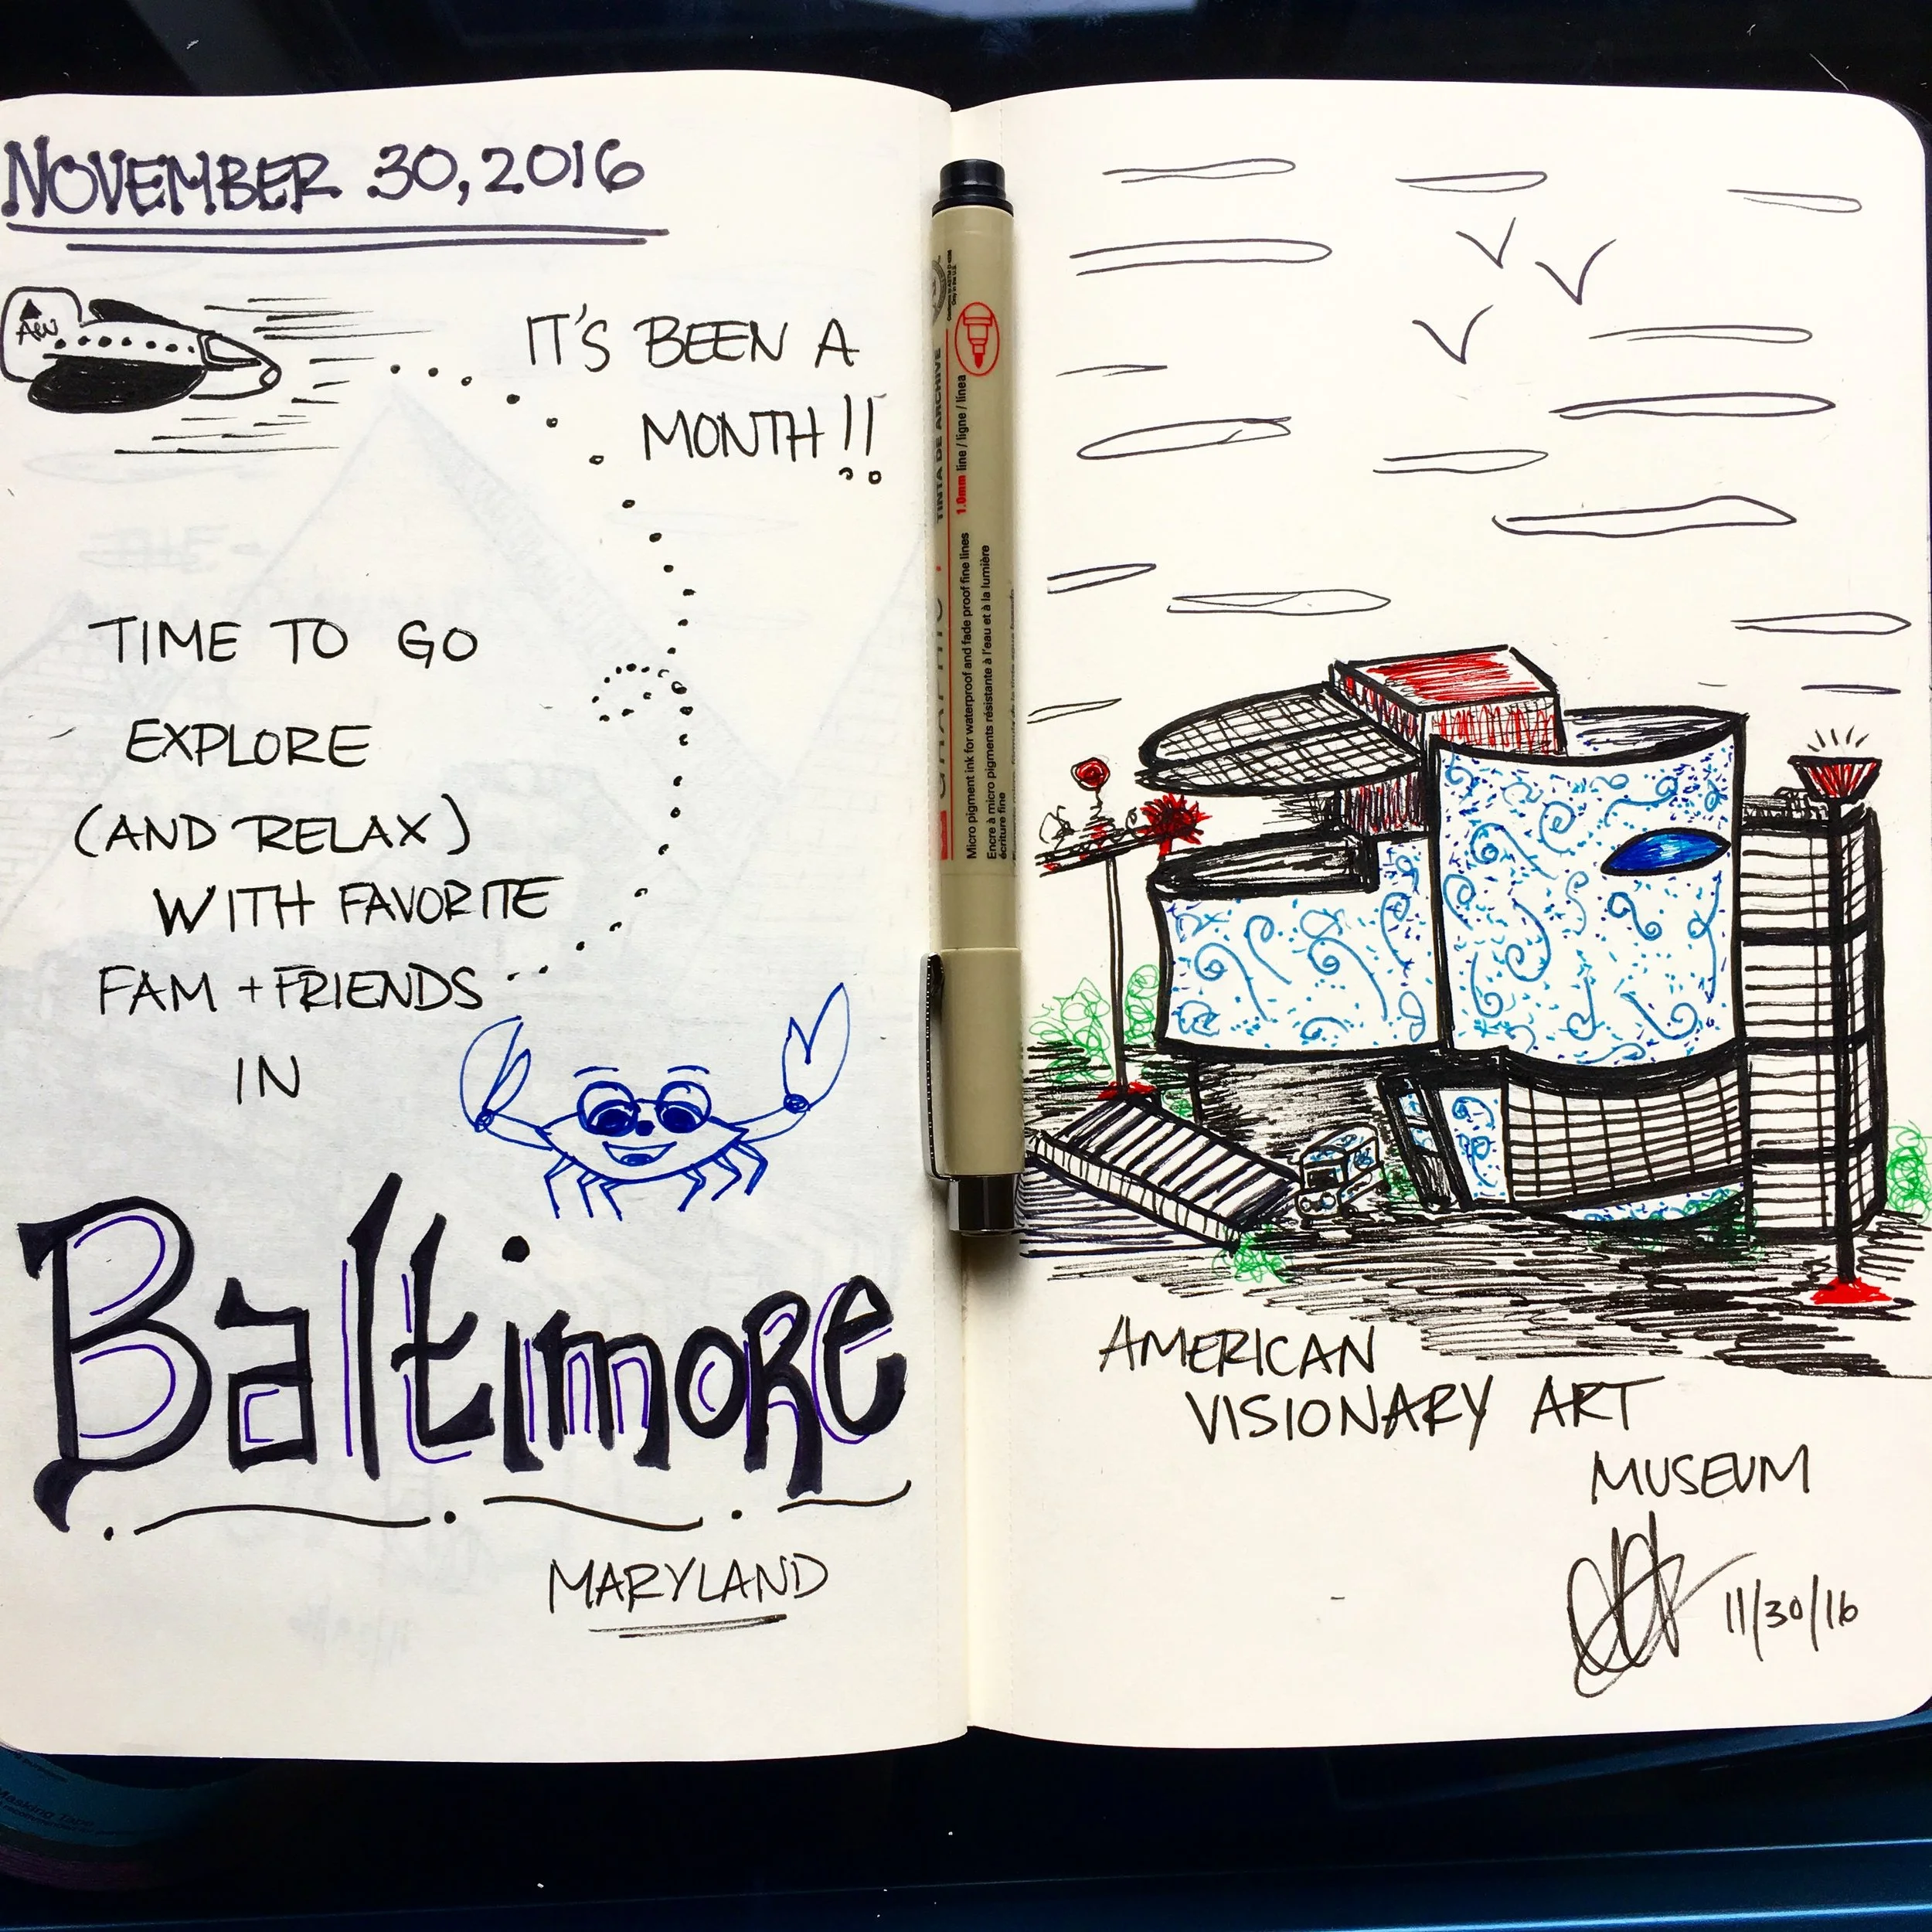 NOVEMBER 30, 2016
IT'S BEEN A
MONTH!!
TIME TO GO
EXPLORE
(AND RELAX)
WITH FAVORITE
FAM + FRIENDS
IN
Baltimore
MARYLAND
TINTA DE ARCHIVE
1.0mm line / ligne / línea
Micro pigment ink for waterproof and fade proof fine lines
Encre à micro pigments résistante à l'eau et à la lumière
écriture fine
AMERICAN
VISIONARY ART
MUSEUM
11/30/16
Masking Tape